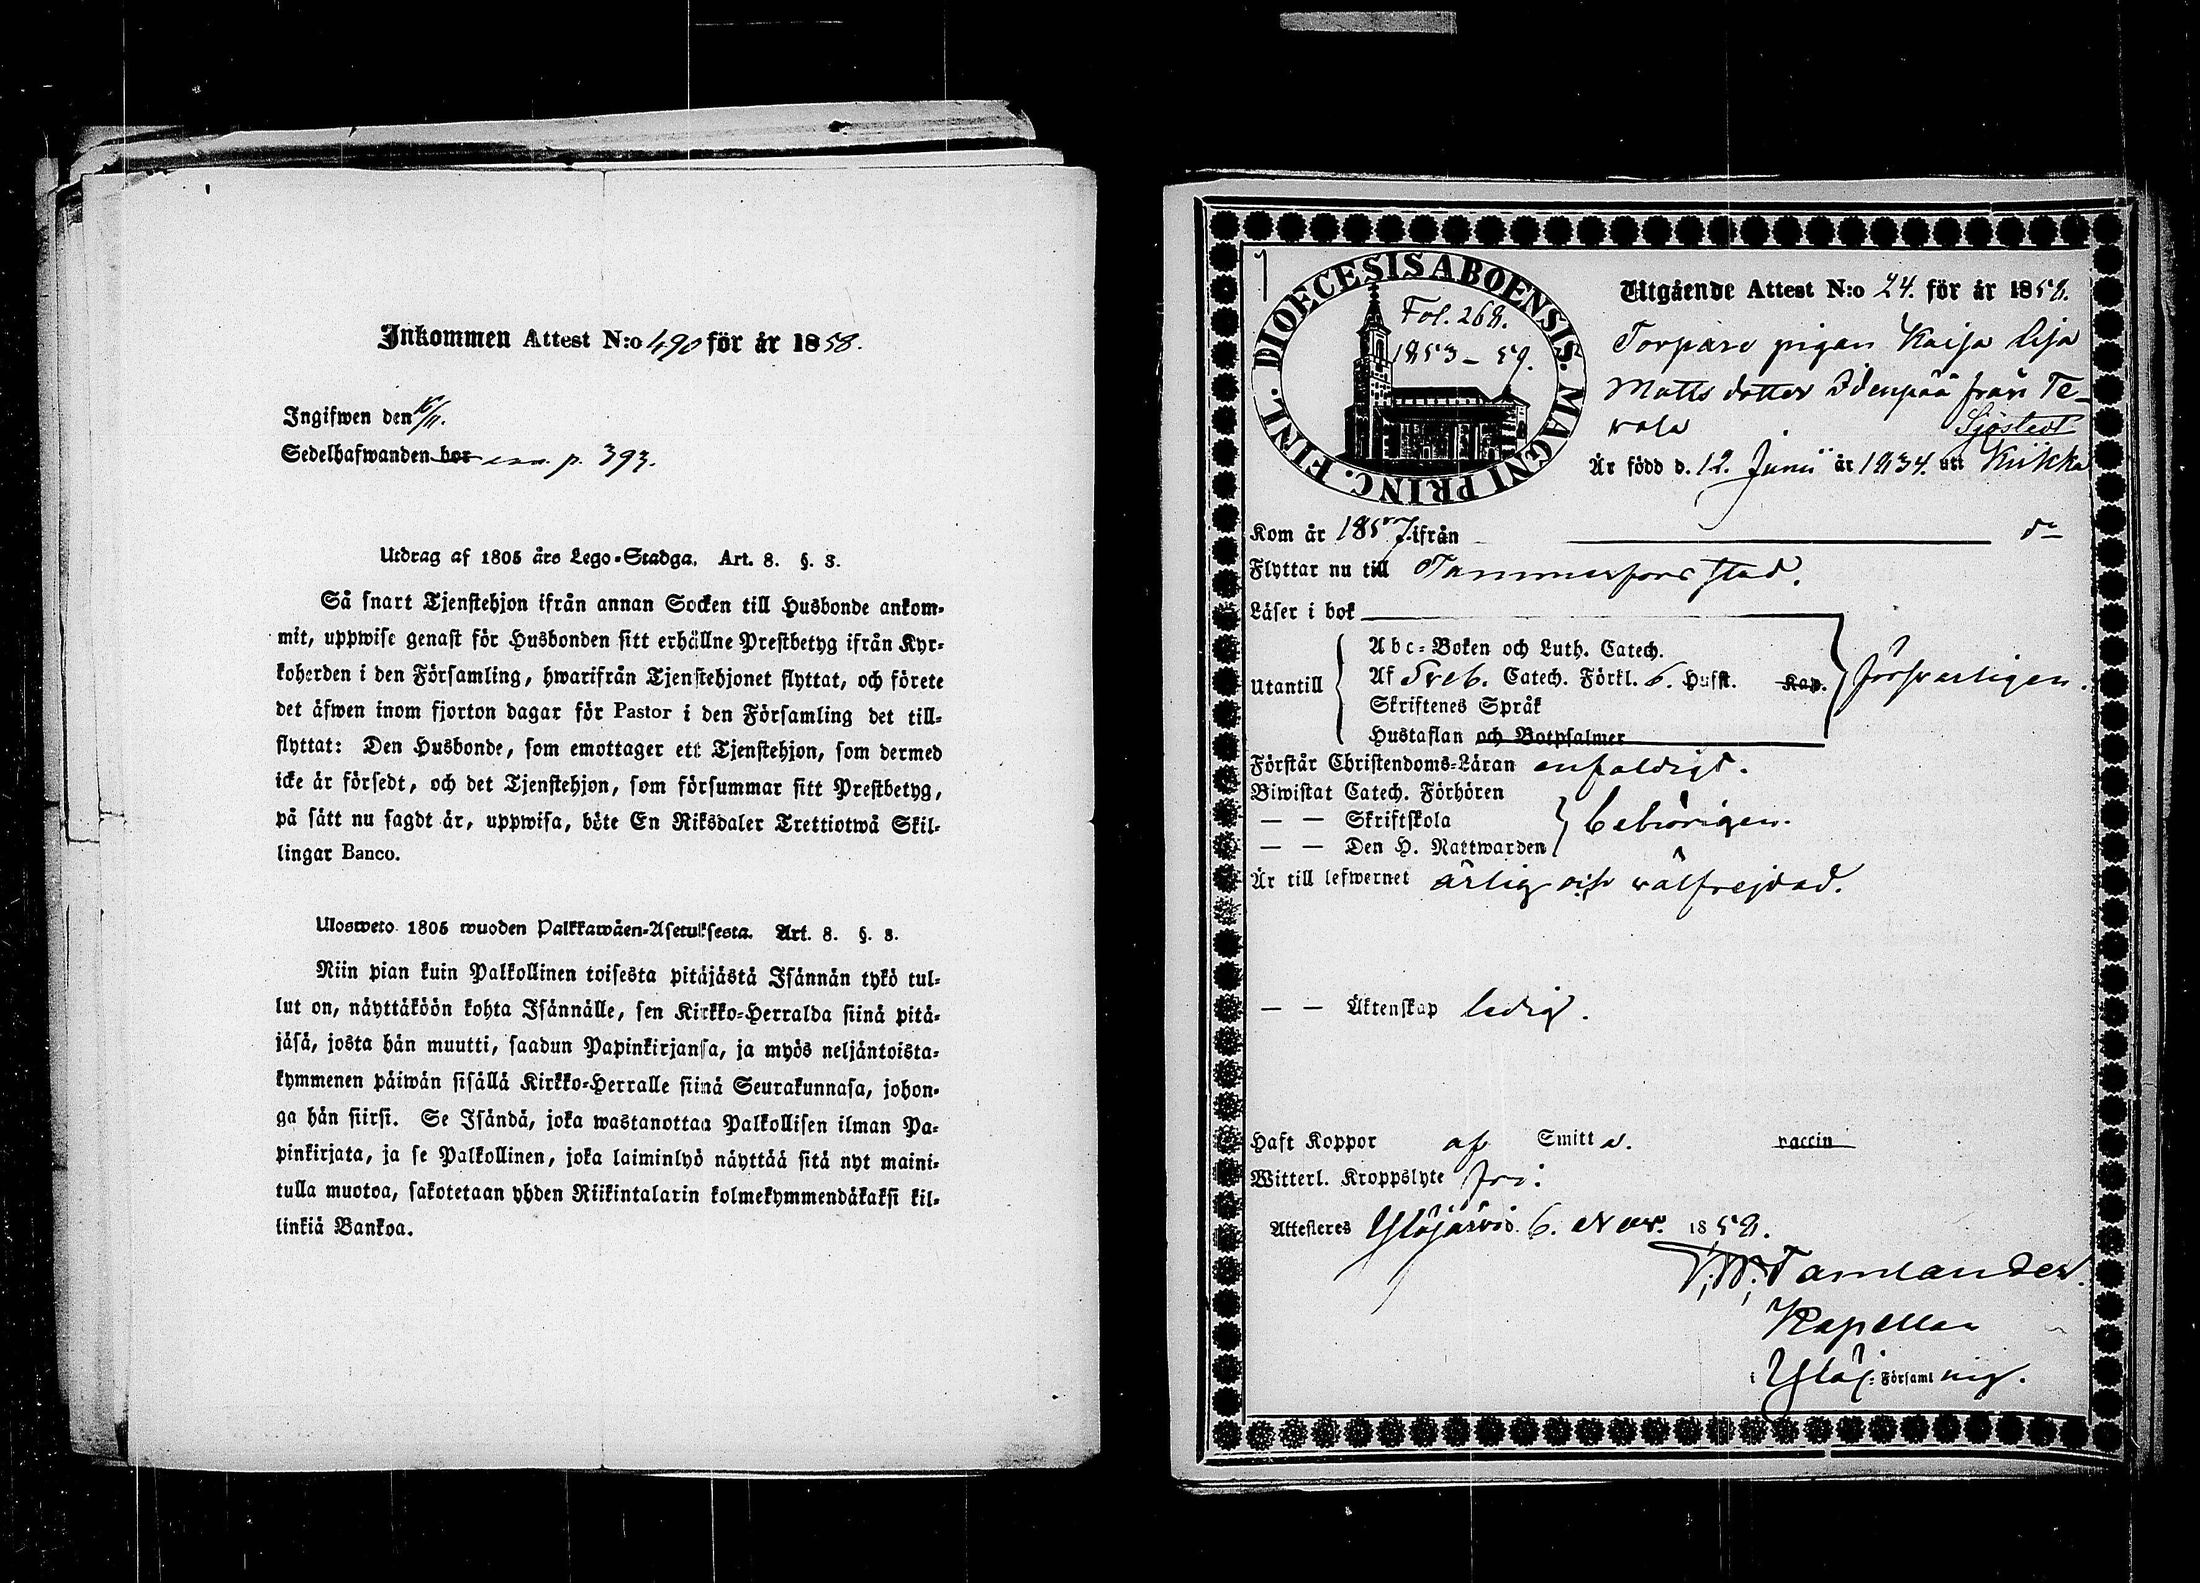 Inkommen Attest N:o 490 för år 1858.
Ingifwen den
Sedelhafwanden bor p. 393.
Utdrag af 1805 års Lego-Stadga. Art. 8. §. 3.
Så snart Tjenstehjon ifrån annan Socken till Husbonde ankom-
mit, uppwise genast för Husbonden sitt erhållne Prestbetyg ifrån Kyr-
koherden i den Församling, hwarifrån Tjenstehjonet flyttat, och förete
det äfwen inom fjorton dagar för Pastor i den Församling det till-
flyttat: Den Husbonde, som emottager ett Tjenstehjon, som dermed
icke är försedt, och det Tjenstehjon, som försummar sitt Prestbetyg,
på sätt nu sagdt är, uppwisa, böte En Riksdaler Trettiotwå Skil-
lingar Banco.
Ulosweto 1805 wuoden Palkkawäen-Asetuksesta. Art. 8. §. 3.
Niin pian kuin Palkollinen toisesta pitäjästä Isännän tykö tul-
lut on, näyttäköön kohta Isännälle, sen Kirkko-Herralda siinä pitä-
jäsä, josta hän muutti, saadun Papinkirjansa, ja myös neljäntoista-
kymmenen päiwän sisällä Kirkko-Herralle siinä Seurakunnasa, johon-
ga hän siirsi. Se Isändä, joka wastanottaa Palkollisen ilman Pa-
pinkirjata, ja se Palkollinen, joka laiminlyö näyttää sitä nyt maini-
tulla muotoa, sakotetaan yhden Riikintalarin kolmekymmendäkaksi kil-
linkiä Bankoa.
DIOECESIS ABOENSIS. MAGNI PRINC. FINL.
Fol. 268.
1853-59.
Utgående Attest N:o 24. för år 1858.
Torpare pigan Kaisa Lisa
Matts dotter Idenpää från Te-
vala Sjöstedt
Är född d. 12. Junii år 1834. uti Kiikka
Kom år 1857. ifrån do
Flyttar nu till Tammerfors stad.
Läser i bok
Utantill
Abc-Boken och Luth. Catech.
Af Sveb. Catech. Förkl. 6. Hufst. Kap.
Skriftenes Språk
Hustaflan och Botpsalmer
försvarligen.
Förstår Christendoms-Läran enfaldigt.
Biwistat Catech. Förhören
— — Skriftskola
— — Den H. Nattwarden
behörigen.
Är till lefwernet ärlig och wälfrejdad.
— — Äktenskap ledig.
Haft Koppor af Smitta. vaccin
Witterl. Kroppslyte fri.
Attesteras Ylöjärvi d. 6. Nov. 1858.
Tamlander.
Kapellan
i Ylöj: Församl ing.